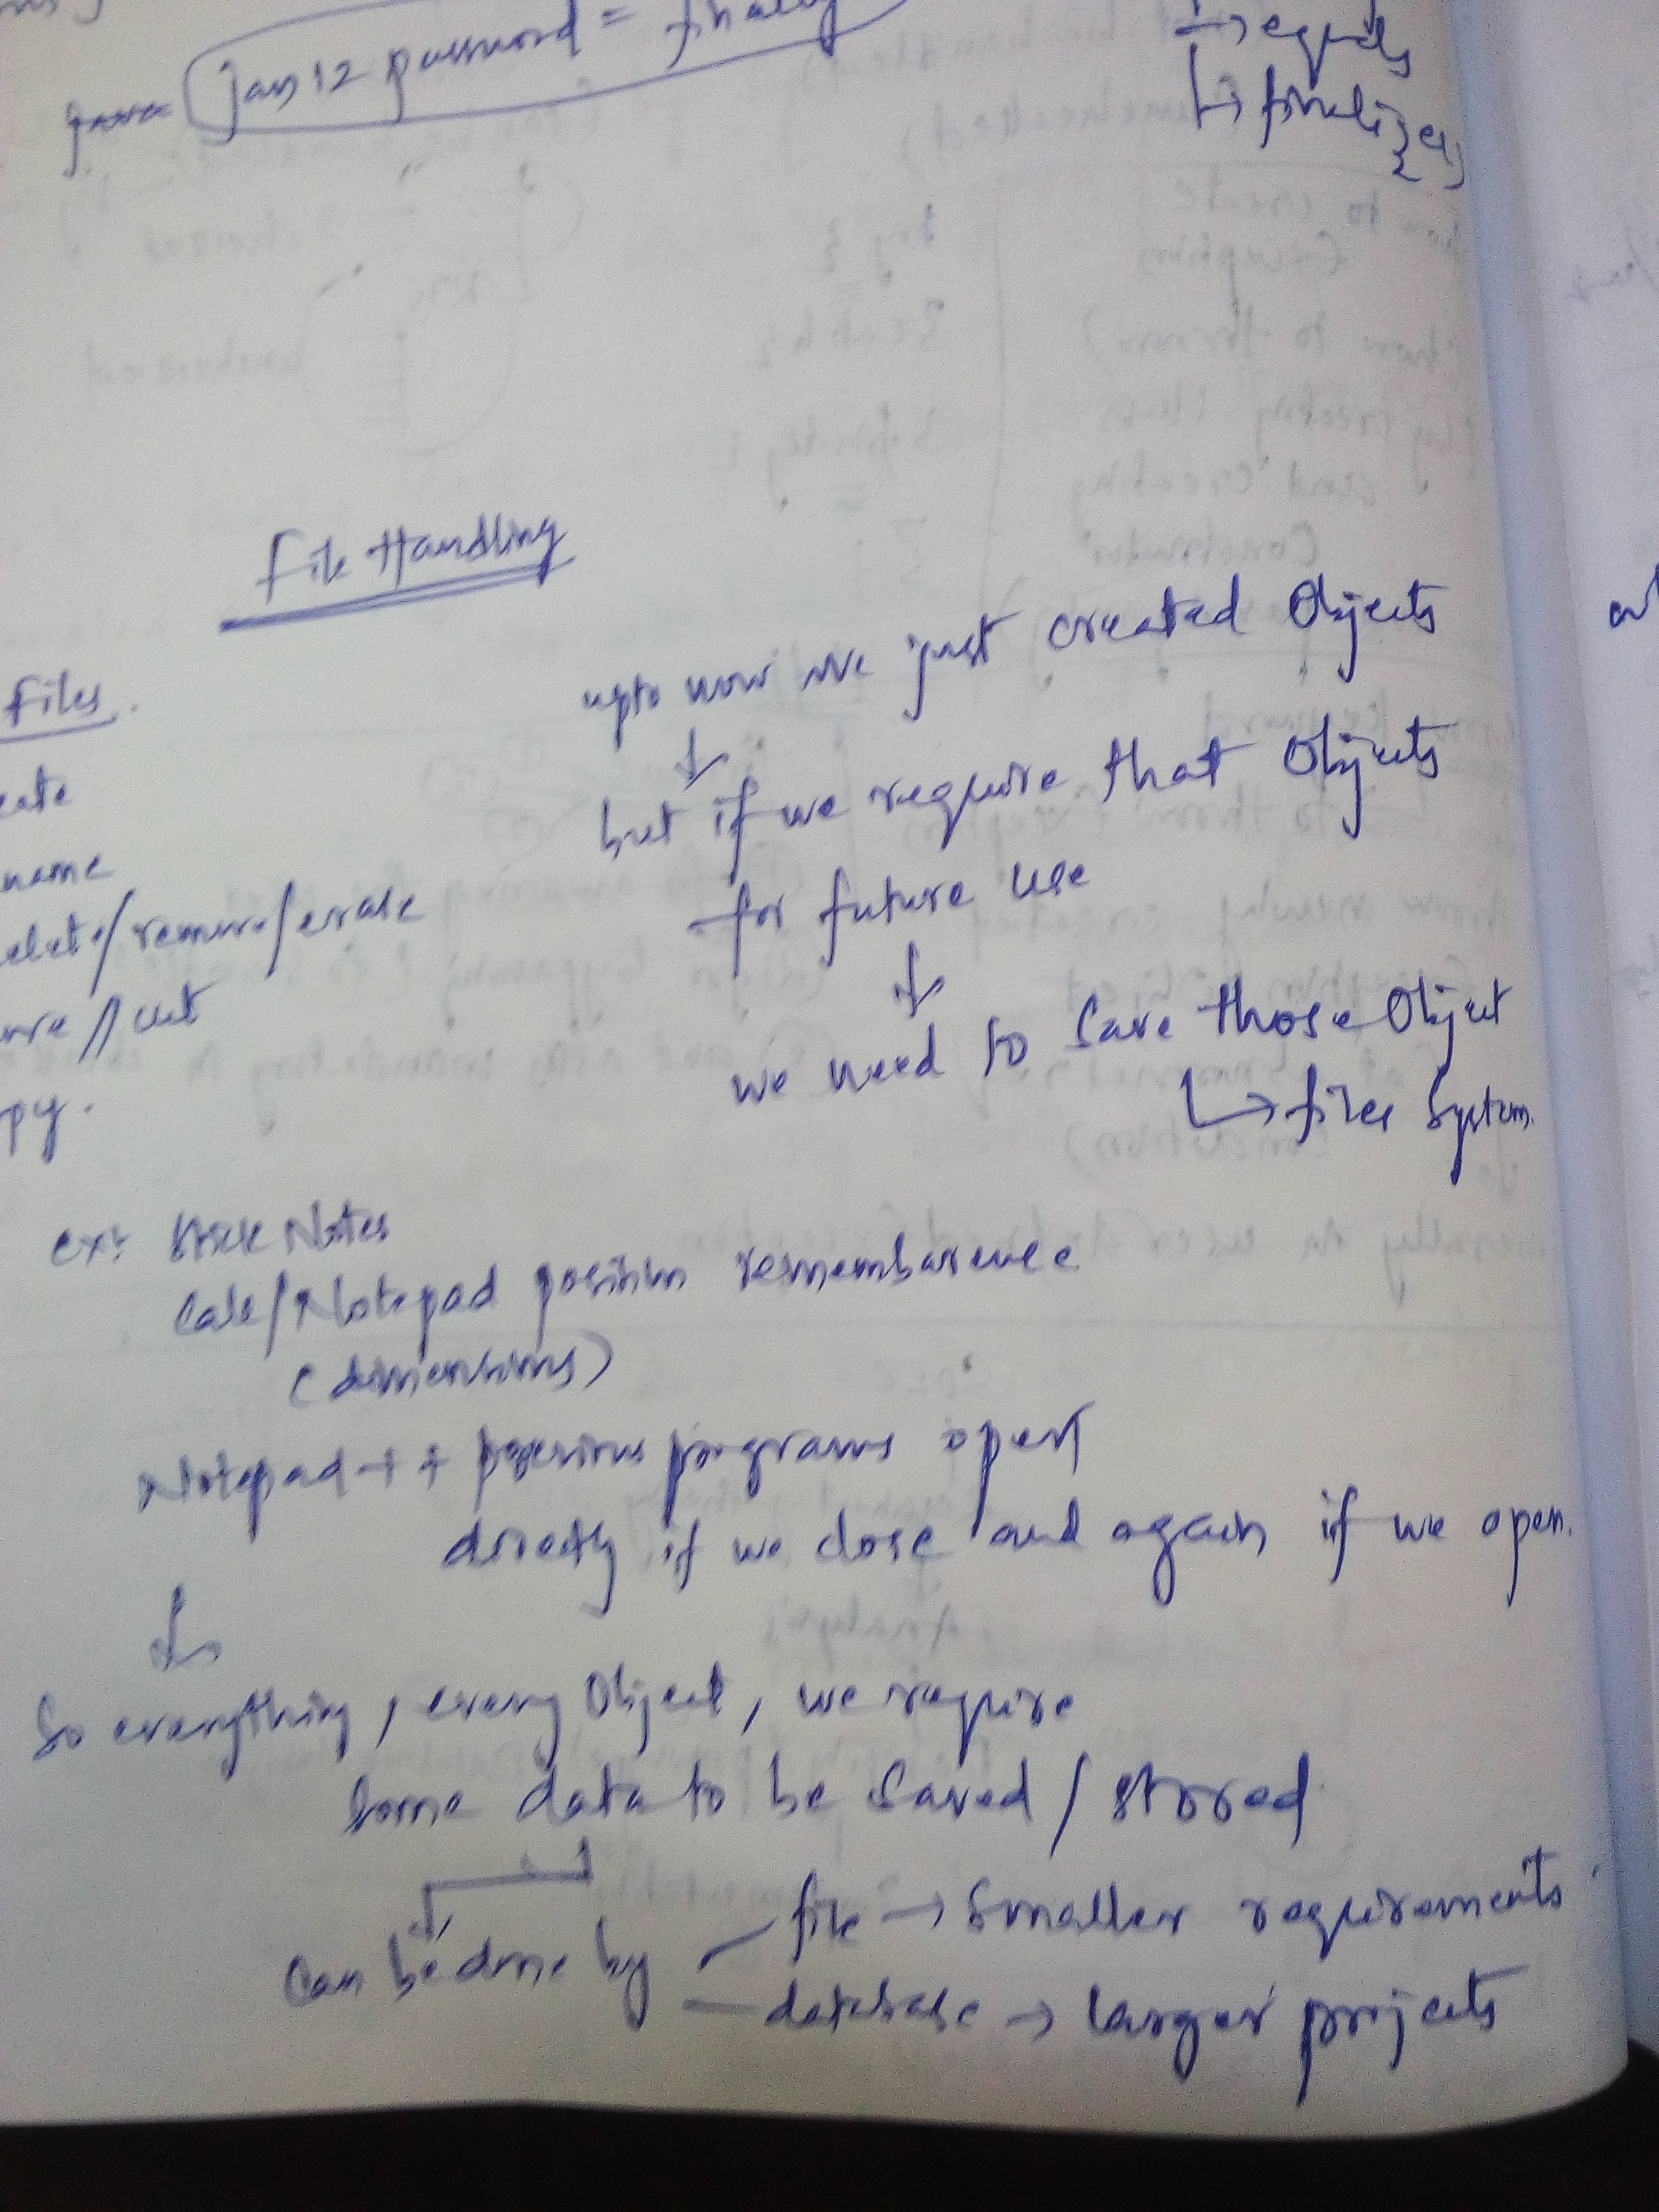 jan 12 password = finally
→ equals
→ finalize()
File Handling
Files.
upto now we just created Objects
↓
eate
but if we require that Objects
name
for future use
elete/remove/erase
↓
/cut
we need to save those Object
py.
→ files System.
ex: Notes
Calc/Notepad position remembarence
(dimensions)
Notepad++ previous programs open
directly if we close and again if we open.
↓
So everything, every Object, we require
some data to be saved/stored
can be done by
file → Smaller requirements
database → larger projects